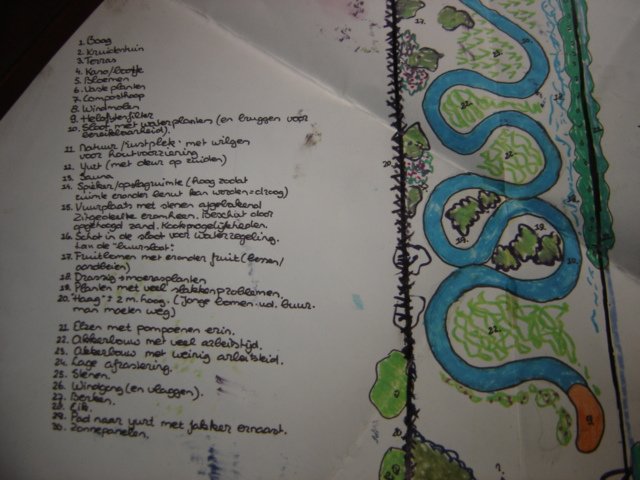 1. Boog
2. Kruidentuin
3. Terras
4. Kano/bootje
5. Bloemen
6. Vaste planten
7. Composthoop
8. Windmolen
9. Helofytenfilter
10. Sloot met waterplanten (en bruggen voor
bereikbaarheid).
11. Natuur/rustplek met wilgen
voor houtvoorziening
12. Yurt (met deur op zuiden)
13. Sauna
14. Spieker/opslagruimte (hoog zodat
ruimte eronder benut kan worden = droog)
15. Vuurplaats met stenen afgebakend
Zitgedeelte eromheen. Beschut door
opgehoogd zand. Kookmogelijkheden.
16. Schot in de sloot voor waterregeling.
t.o.v. de "buursloot".
17. Fruitbomen met eronder fruit (bomen/
aardbeien)
18. Drassig + moerasplanten
19. Planten met veel slakkenproblemen.
20. Haag ± 2 m. hoog. (Jonge bomen v.d. buur-
man moeten weg)
21. Elzen met pompoenen erin.
22. Akkerbouw met veel arbeidstijd.
23. Akkerbouw met weinig arbeidstijd.
24. Lage afrastering.
25. Stenen.
26. Windgong (en vlaggen).
27. Berken.
28. Eik.
29. Pad naar yurt met fakkel ernaast.
30. Zonnepanelen.
17.
22.
19.
18.
10.
22.
9.
20.